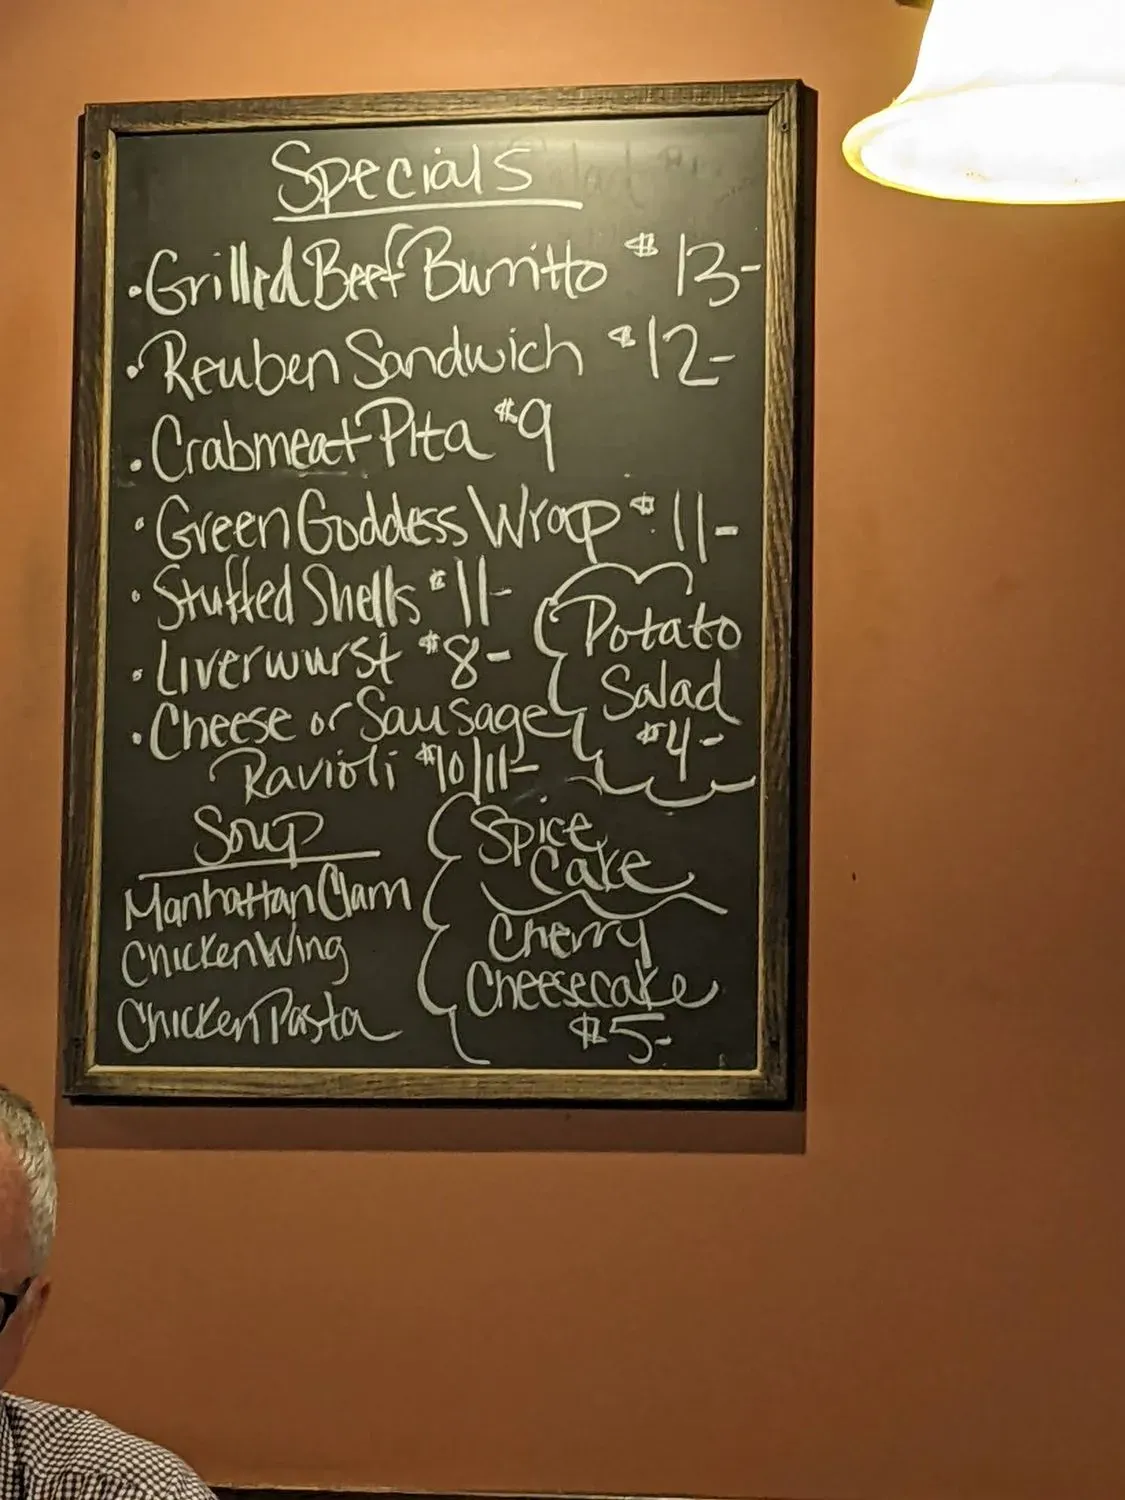 Specials
• Grilled Beef Burritto $13-
• Reuben Sandwich $12-
• Crabmeat Pita $9
• Green Goddess Wrap $11-
• Stuffed Shells $11-
• Liverwurst $8-
• Cheese or Sausage
Ravioli $10/11-
Potato
Salad
$4-
Soup
Manhattan Clam
Chicken Wing
Chicken Pasta
Spice
Cake
Cherry
Cheesecake
$5-